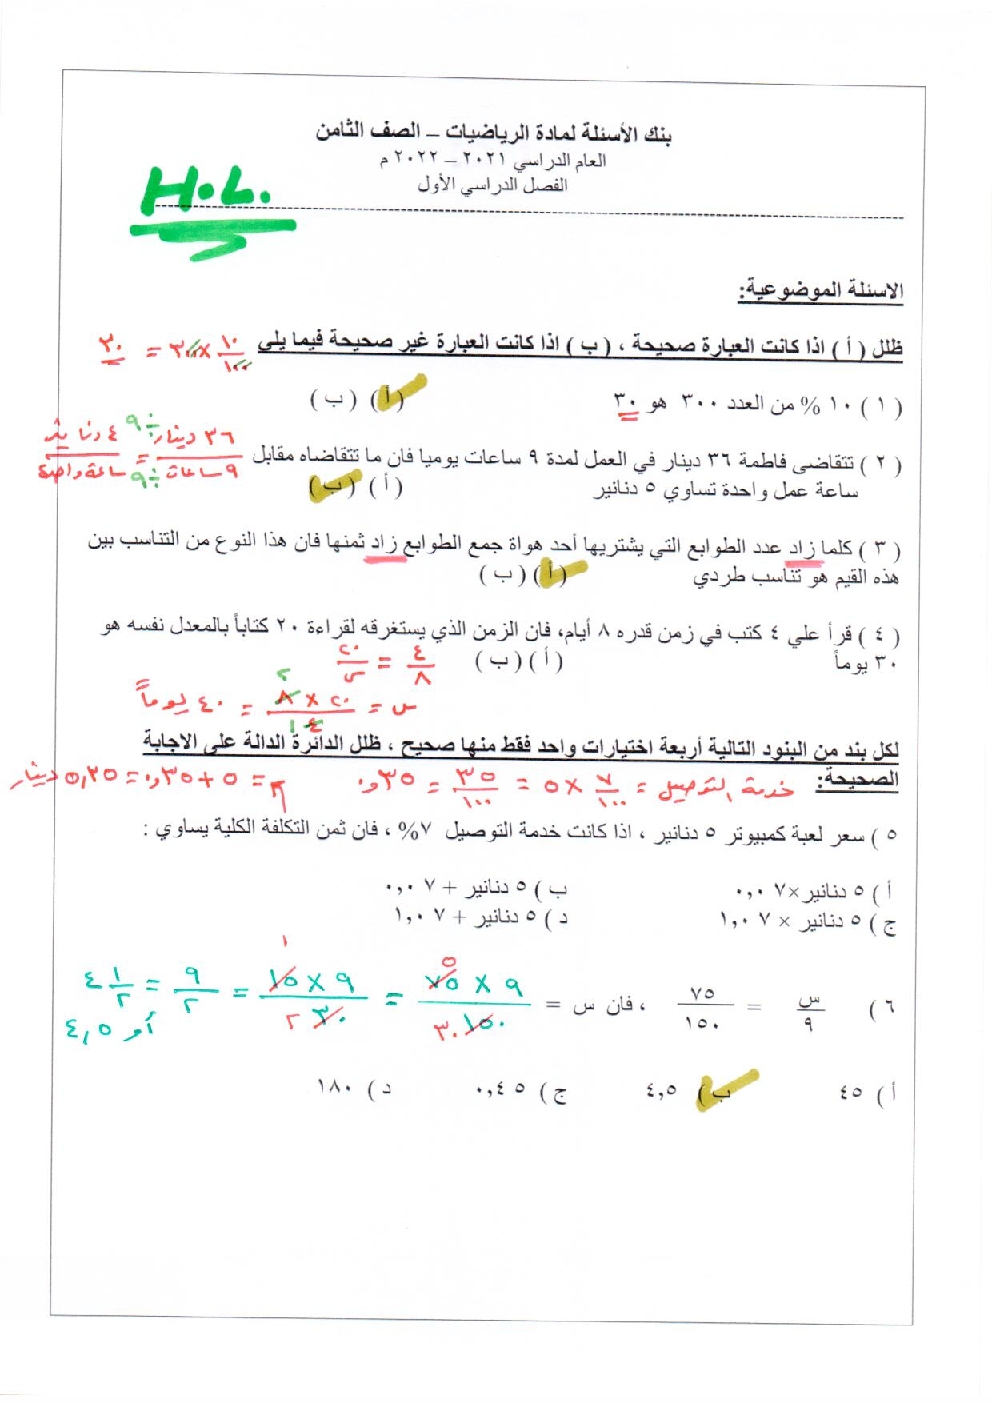 بنك الأسئلة لمادة الرياضيات – الصف الثامن
العام الدراسي ٢٠٢١ – ٢٠٢٢ م
الفصل الدراسي الأول
H.L.
الاسئلة الموضوعية:
ظلل ( أ ) اذا كانت العبارة صحيحة ، ( ب ) اذا كانت العبارة غير صحيحة فيما يلي
١٠/١٠٠ × ٣٠٠ = ٣٠
( ١ ) ١٠ % من العدد ٣٠٠ هو ٣٠ ( أ ) ( ب )
٣٦ دينار ÷ ٩ / ٩ ساعات ÷ ٩ = ٤ دنانير / ساعة واحدة
( ٢ ) تتقاضى فاطمة ٣٦ دينار في العمل لمدة ٩ ساعات يوميا فان ما تتقاضاه مقابل
ساعة عمل واحدة تساوي ٥ دنانير ( أ ) ( ب )
( ٣ ) كلما زاد عدد الطوابع التي يشتريها أحد هواة جمع الطوابع زاد ثمنها فان هذا النوع من التناسب بين
هذه القيم هو تناسب طردي ( أ ) ( ب )
( ٤ ) قرأ علي ٤ كتب في زمن قدره ٨ أيام، فان الزمن الذي يستغرقه لقراءة ٢٠ كتاباً بالمعدل نفسه هو
٣٠ يوماً ( أ ) ( ب )
٤/٨ = ٢٠/س
س = ٢٠ × ٨ / ٤ = ٤٠ يوماً
لكل بند من البنود التالية أربعة اختيارات واحد فقط منها صحيح ، ظلل الدائرة الدالة على الاجابة
الصحيحة:
خدمة التوصيل = ٧/١٠٠ × ٥ = ٣٥/١٠٠ = ٠,٣٥
= ٥ + ٠,٣٥ = ٥,٣٥ دينار
٥ ) سعر لعبة كمبيوتر ٥ دنانير ، اذا كانت خدمة التوصيل ٧% ، فان ثمن التكلفة الكلية يساوي :
أ ) ٥ دنانير × ٠,٠٧ ب ) ٥ دنانير + ٠,٠٧
ج ) ٥ دنانير × ١,٠٧ د ) ٥ دنانير + ١,٠٧
٦ ) س/٩ = ٧٥/١٥٠ ، فان س = ٩ × ٧٥ / ١٥٠ = ٩ × ١٥ / ٣٠ = ٩/٢ = ٤ ١/٢
أو ٤,٥
أ ) ٤٥ ب ) ٤,٥ ج ) ٠,٤٥ د ) ١٨٠